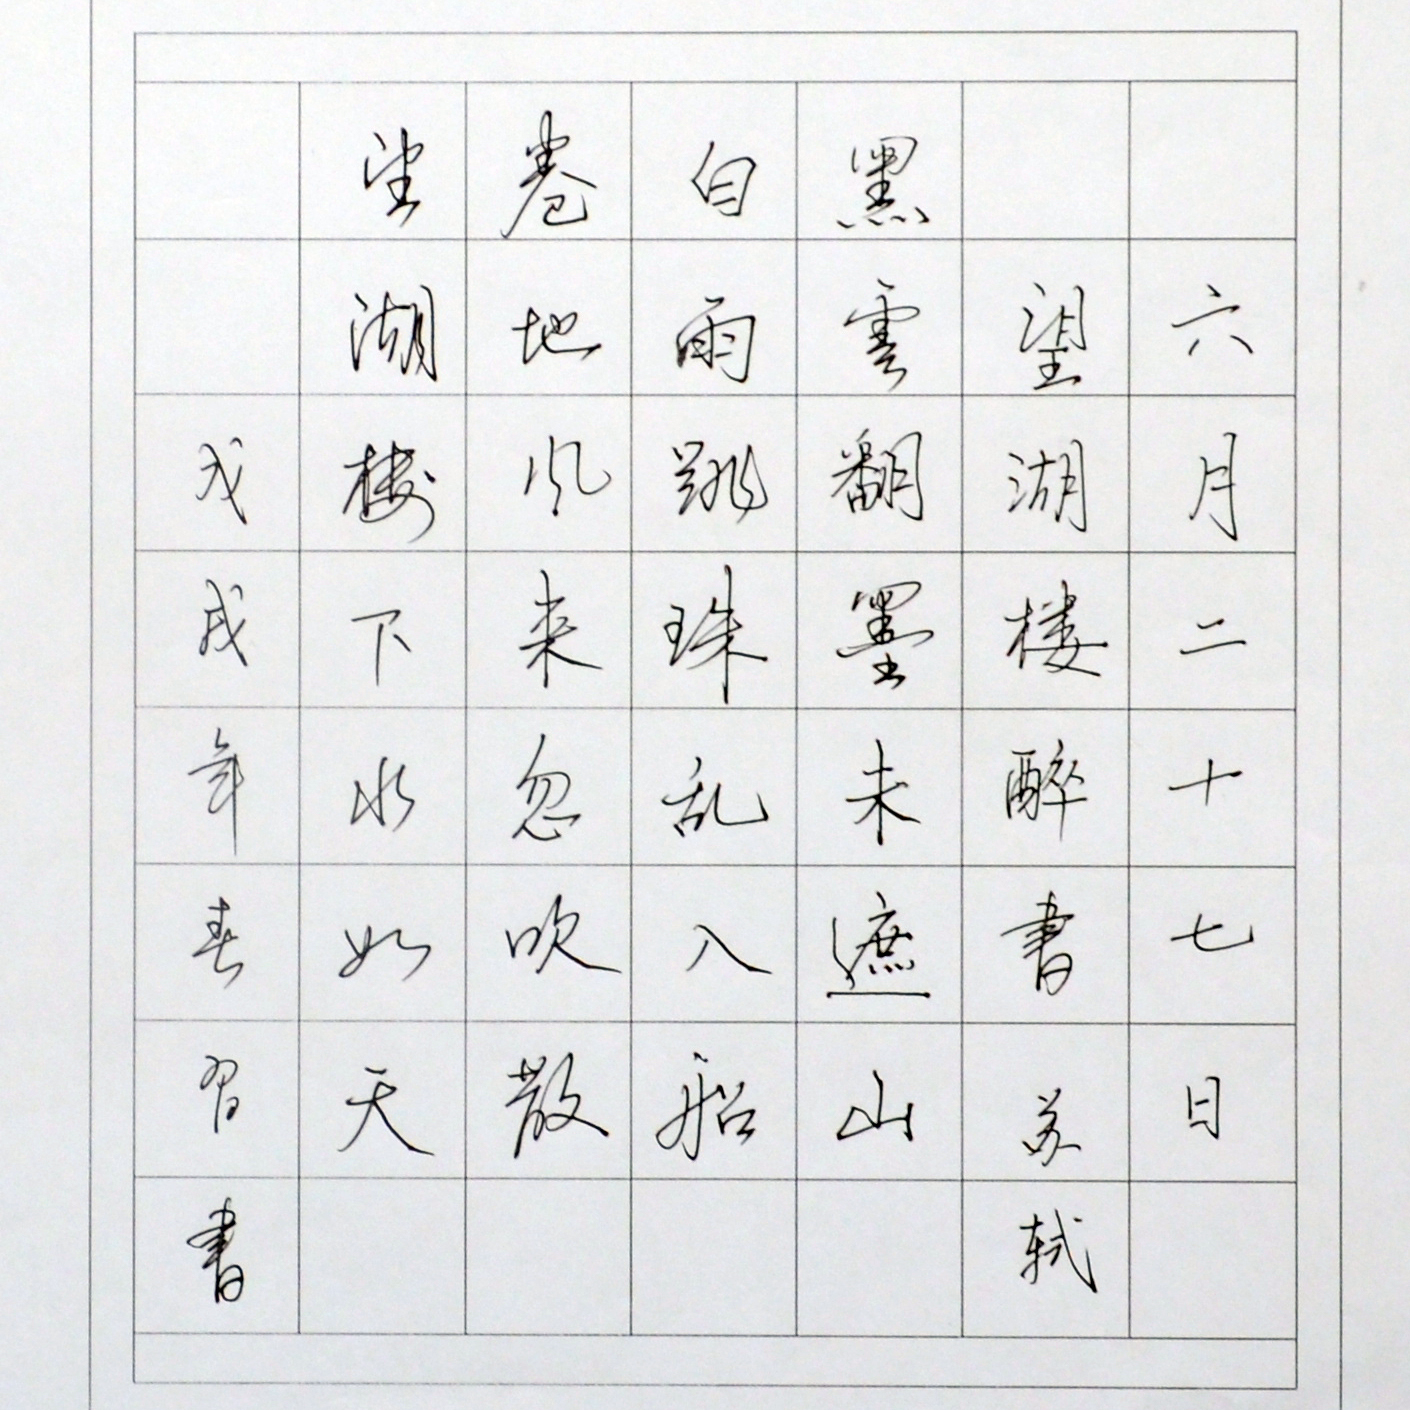 六月二十七日
望湖楼醉書苏轼
黑雲翻墨未遮山
白雨跳珠乱入船
卷地风来忽吹散
望湖楼下水如天
戊戌年春習書